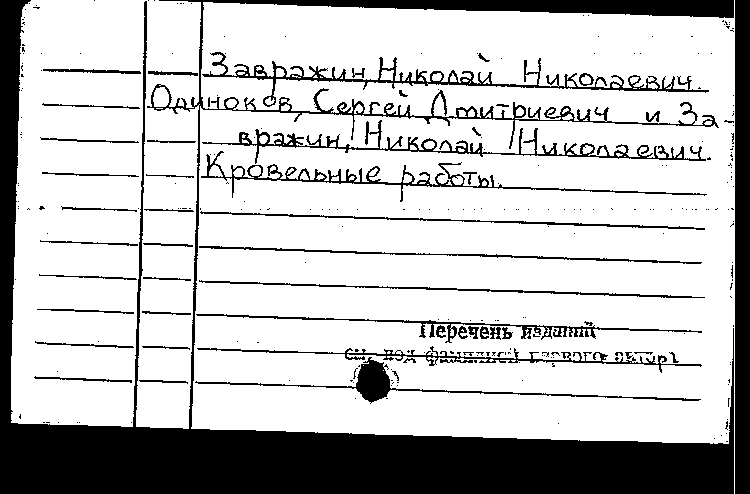 Завражин, Николай Николаевич.
Одиноков, Сергей Дмитриевич и За-
вражин, Николай Николаевич.
Кровельные работы.
Перечень изданий
см. под фамилией первого автора